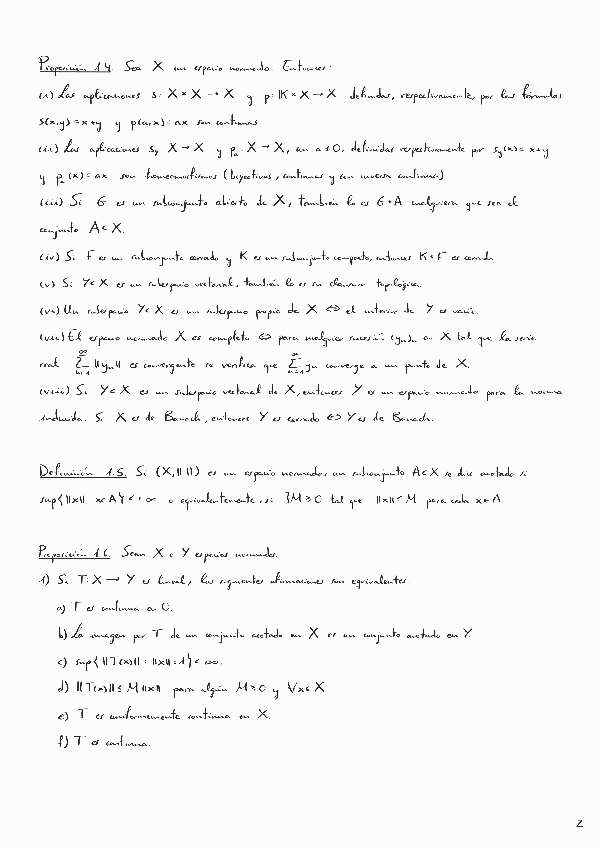 Proposición 1.4. Sea X un espacio normado. Entonces:
(i) Las aplicaciones s: X × X → X y p: K × X → X definidas, respectivamente, por las fórmulas
s(x,y) = x+y y p(a,x) = ax son continuas
(ii) Las aplicaciones s_y: X → X y p_a: X → X, con a≠0, definidas respectivamente por s_y(x) = x+y
y p_a(x) = ax son homeomorfismos (biyectivas, continuas y con inversa continua)
(iii) Si G es un subconjunto abierto de X, también lo es G+A cualquiera que sea el
conjunto A⊂X.
(iv) Si F es un subconjunto cerrado y K es un subconjunto compacto, entonces K+F es cerrado
(v) Si Y⊂X es un subespacio vectorial, también lo es su clausura topológica.
(vi) Un subespacio Y⊂X es un subespacio propio de X ⇔ el interior de Y es vacío.
(vii) El espacio normado X es completo ⇔ para cualquier sucesión (y_n)_n en X tal que la serie
real ∑_{n=1}^∞ ||y_n|| es convergente se verifica que ∑_{n=1}^∞ y_n converge a un punto de X.
(viii) Si Y⊂X es un subespacio vectorial de X, entonces Y es un espacio normado para la norma
inducida. Si X es de Banach, entonces Y es cerrado ⇔ Y es de Banach.
Definición 1.5. Si (X,|| ||) es un espacio normado, un subconjunto A⊂X se dice acotado si
sup{||x|| : x∈A} < +∞ o equivalentemente, si ∃M≥0 tal que ||x||≤M para cada x∈A.
Proposición 1.6. Sean X e Y espacios normados.
1) Si T: X → Y es lineal, las siguientes afirmaciones son equivalentes:
a) T es continua en 0.
b) La imagen por T de un conjunto acotado en X es un conjunto acotado en Y
c) sup{||T(x)|| : ||x||=1} < ∞.
d) ||T(x)|| ≤ M||x|| para algún M≥0 y ∀x∈X
e) T es uniformemente continua en X.
f) T es continua.
2